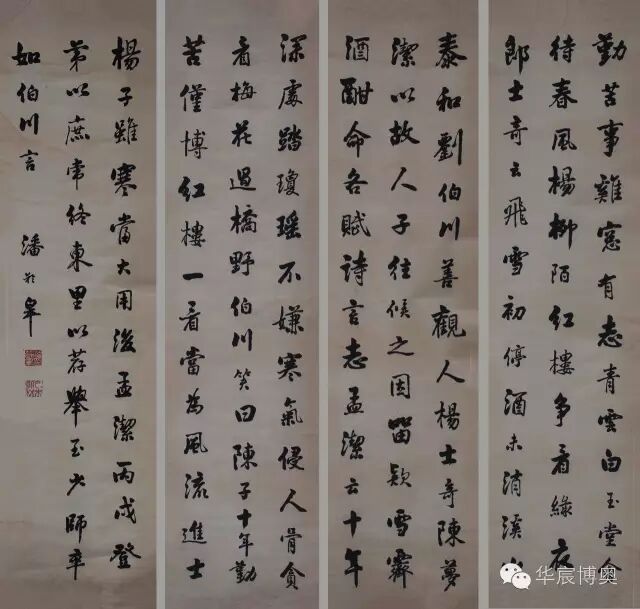 勤苦事雞窓有志青雲白玉堂会
待春風楊柳陌紅樓爭看綠衣
郎士奇云飛雪初停酒未消溪山
泰和劉伯川善觀人楊士奇陳夢
潔以故人子往候之因留款雪霽
酒酣命各賦詩言志孟潔云十年
深處踏瓊瑤不嫌寒氣侵人骨貪
看梅花過橋野伯川笑曰陳子十年勤
苦僅博紅樓一看當為風流進士
楊子雖寒當大用後孟潔丙戌登
第以庶常終東里以荐舉至少師卒
如伯川言 潘齡皋
华宸博奥